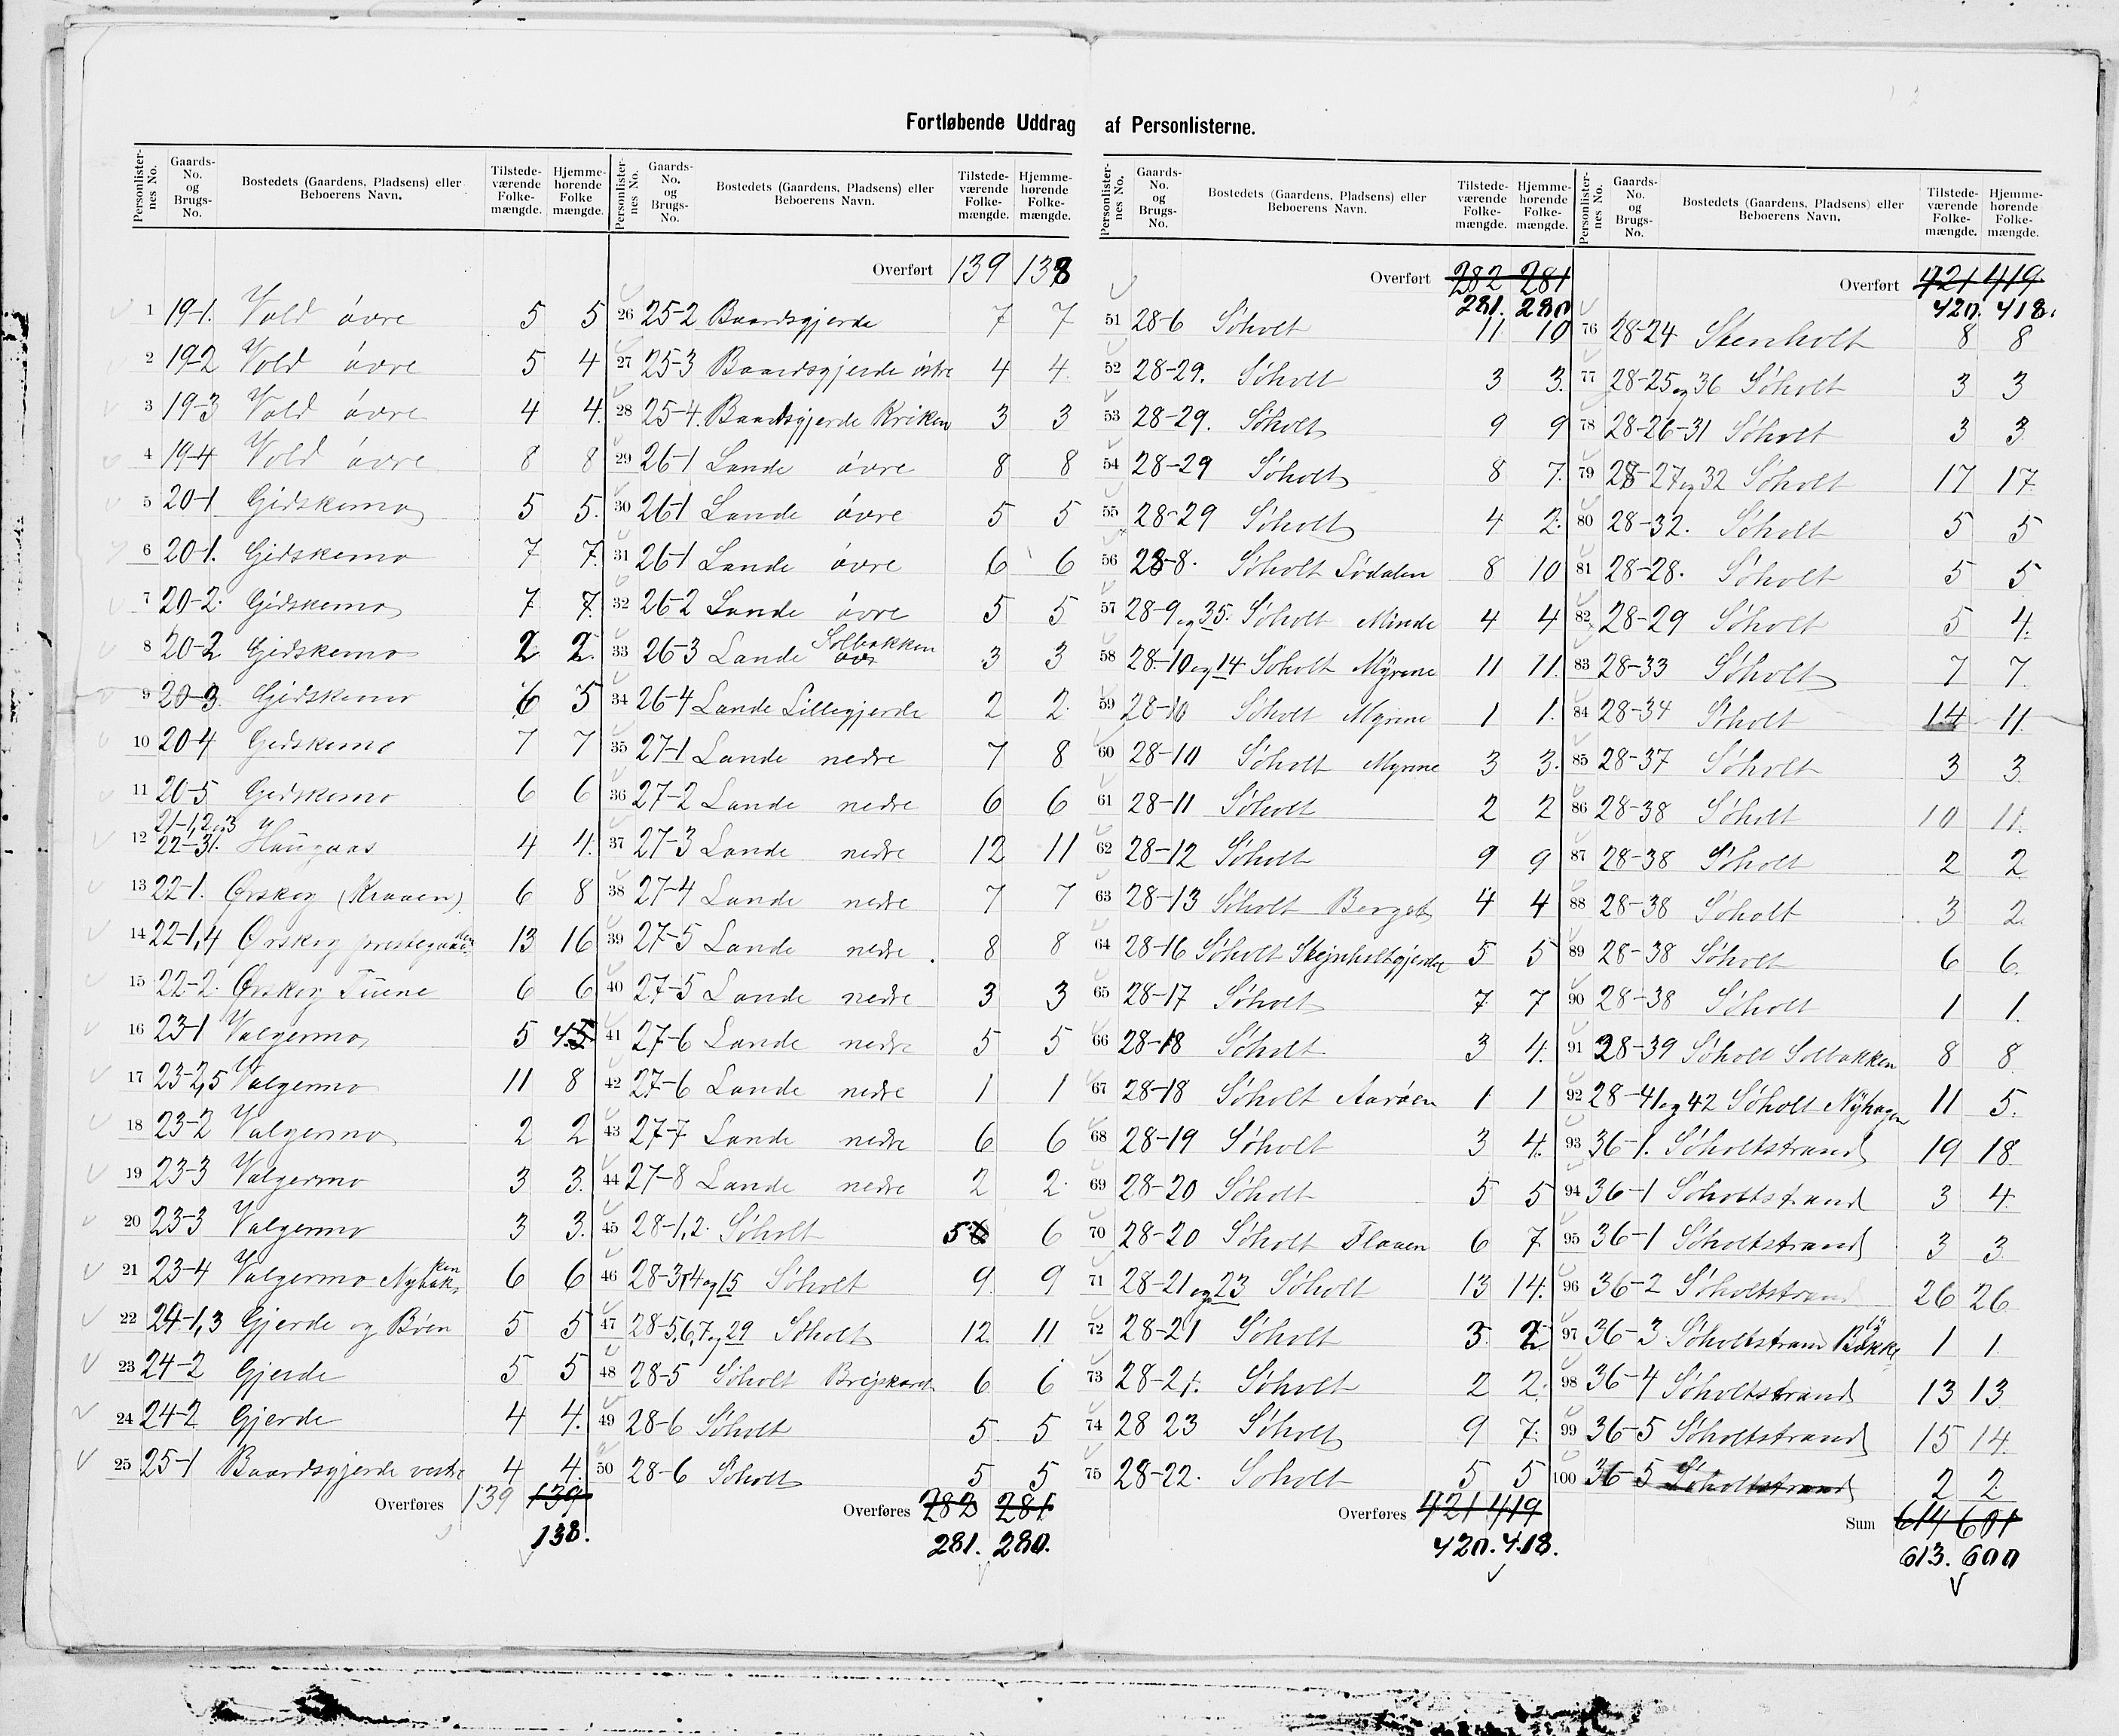 Fortløbende Uddrag af Personlisterne.
Personlisternes No. Gaards-No. og Brugs-No. Bostedets (Gaardens, Pladsens) eller Beboerens Navn. Tilstedeværende Folkemængde. Hjemmehørende Folkemængde.
1 19-1. Vold øvre 5 5
2 19-2 Vold øvre 5 4
3 19-3 Vold øvre 4 4.
4 19-4 Vold øvre 8 8
5 20-1 Gidskemo 5 5.
6 20-1. Gidskemo 7 7.
7 20-2. Gidskemo 7 7.
8 20-2 Gidskemo 2 2.
9 20-3. Gidskemo 6 5
10 20-4 Gidskemo 7 7
11 20-5 Gidskemo 6 6
12 21-1,2og3 22-31. Haugaas 4 4.
13 22-1. Ørskog (Kraaen) 6 8
14 22-1,4 Ørskog prestegaarden 13 16
15 22-2. Ørskog Tuene 6 6
16 23-1 Valgermo 5 4.5
17 23-2,5 Valgermo 11 8
18 23-2 Valgermo 2 2
19 23-3 Valgermo 3 3.
20 23-3 Valgermo 3 3.
21 23-4 Valgermo Nybakken 6 6
22 24-1,3 Gjerde og Bøen 5 5
23 24-2 Gjerde 5 5
24 24-2 Gjerde 4 4.
25 25-1 Baardsgjerde vestre 4 4.
Overføres 139 139
138.
Personlisternes No. Gaards-No. og Brugs-No. Bostedets (Gaardens, Pladsens) eller Beboerens Navn. Tilstedeværende Folkemængde. Hjemmehørende Folkemængde.
Overført 139 138
26 25-2 Baardsgjerde 7 7
27 25-3 Baardsgjerde østre 4 4
28 25-4. Baardsgjerde Kriken 3 3
29 26-1 Lande øvre 8 8
30 26-1 Lande øvre 5 5
31 26-1 Lande øvre 6 6
32 26-2 Lande øvre 5 5
33 26-3 Lande Solbakken øvr 3 3
34 26-4 Lande Lillegjerde 2 2.
35 27-1 Lande nedre 7 8
36 27-2 Lande nedre 6 6
37 27-3 Lande nedre 12 11
38 27-4 Lande nedre 7 7
39 27-5 Lande nedre. 8 8
40 27-5 Lande nedre 3 3
41 27-6 Lande nedre 5 5
42 27-6 Lande nedre 1 1
43 27-7 Lande nedre 6 6
44 27-8 Lande nedre 2 2.
45 28-1,2. Søholt 5 6 6
46 28-3,4og15 Søholt 9 9
47 28-5,6,7og29 Søholt 12 11
48 28-5 Søholt Brejskard 6 6
49 28-6 Søholt 5 5
50 28-6 Søholt 5 5
Overføres 282 281
281. 280.
Personlisternes No. Gaards-No. og Brugs-No. Bostedets (Gaardens, Pladsens) eller Beboerens Navn. Tilstedeværende Folkemængde. Hjemmehørende Folkemængde.
Overført 282 281
281. 280
51 28-6 Søholt 11 10
52 28-29. Søholt 3 3.
53 28-29. Søholt 9 9
54 28-29 Søholt 8 7.
55 28-29 Søholt 4 2.
56 28-8. Søholt Lødalen 8 10
57 28-9og35. Søholt Minde 4 4
58 28-10og14 Søholt Myrene 11 11.
59 28-10 Søholt Myrene 1 1.
60 28-10 Søholt Myrene 3 3.
61 28-11 Søholt 2 2
62 28-12 Søholt 9 9
63 28-13 Søholt Berget 4 4
64 28-16 Søholt Stejnholtgjerde 5 5
65 28-17 Søholt 7 7
66 28-18 Søholt 3 4.
67 28-18 Søholt Aarøen 1 1
68 28-19 Søholt 3 4.
69 28-20 Søholt 5 5
70 28-20 Søholt Flaaen 6 7
71 28-21og23 Søholt 13 14.
72 28-21 Søholt 3. 2
73 28-21. Søholt 2 2.
74 28 23 Søholt 9 7.
75 28-22. Søholt 5 5
Overføres 421 419
420. 418.
Personlisternes No. Gaards-No. og Brugs-No. Bostedets (Gaardens, Pladsens) eller Beboerens Navn. Tilstedeværende Folkemængde. Hjemmehørende Folkemængde.
Overført 421 419
420. 418.
76 28-24 Stenholt 8 8
77 28-25og36 Søholt 3 3
78 28-26-31 Søholt 3 3
79 28-27og32 Søholt 17 17
80 28-32. Søholt 5 5
81 28-28. Søholt 5 5
82 28-29 Søholt 5 4.
83 28-33 Søholt 7 7.
84 28-34 Søholt 14 11.
85 28-37 Søholt 3 3
86 28-38 Søholt 10 11.
87 28-38 Søholt 2 2
88 28-38 Søholt 3 2.
89 28-38 Søholt 6 6.
90 28-38 Søholt 1 1.
91 28-39 Søholt Solbakken 8 8
92 28-41og42 Søholt Nyhagen 11 5.
93 36-1. Søholtstrand 19 18
94 36-1 Søholtstrand 3 4.
95 36-1 Søholtstrand 3 3
96 36-2 Søholtstrand 26 26
97 36-3 Søholtstrand 1 1
98 36-4 Søholtstrand 13 13
99 36-5 Søholtstrand 15 14.
100 36-5 Søholtstrand 2 2
Sum 614 601
613. 600